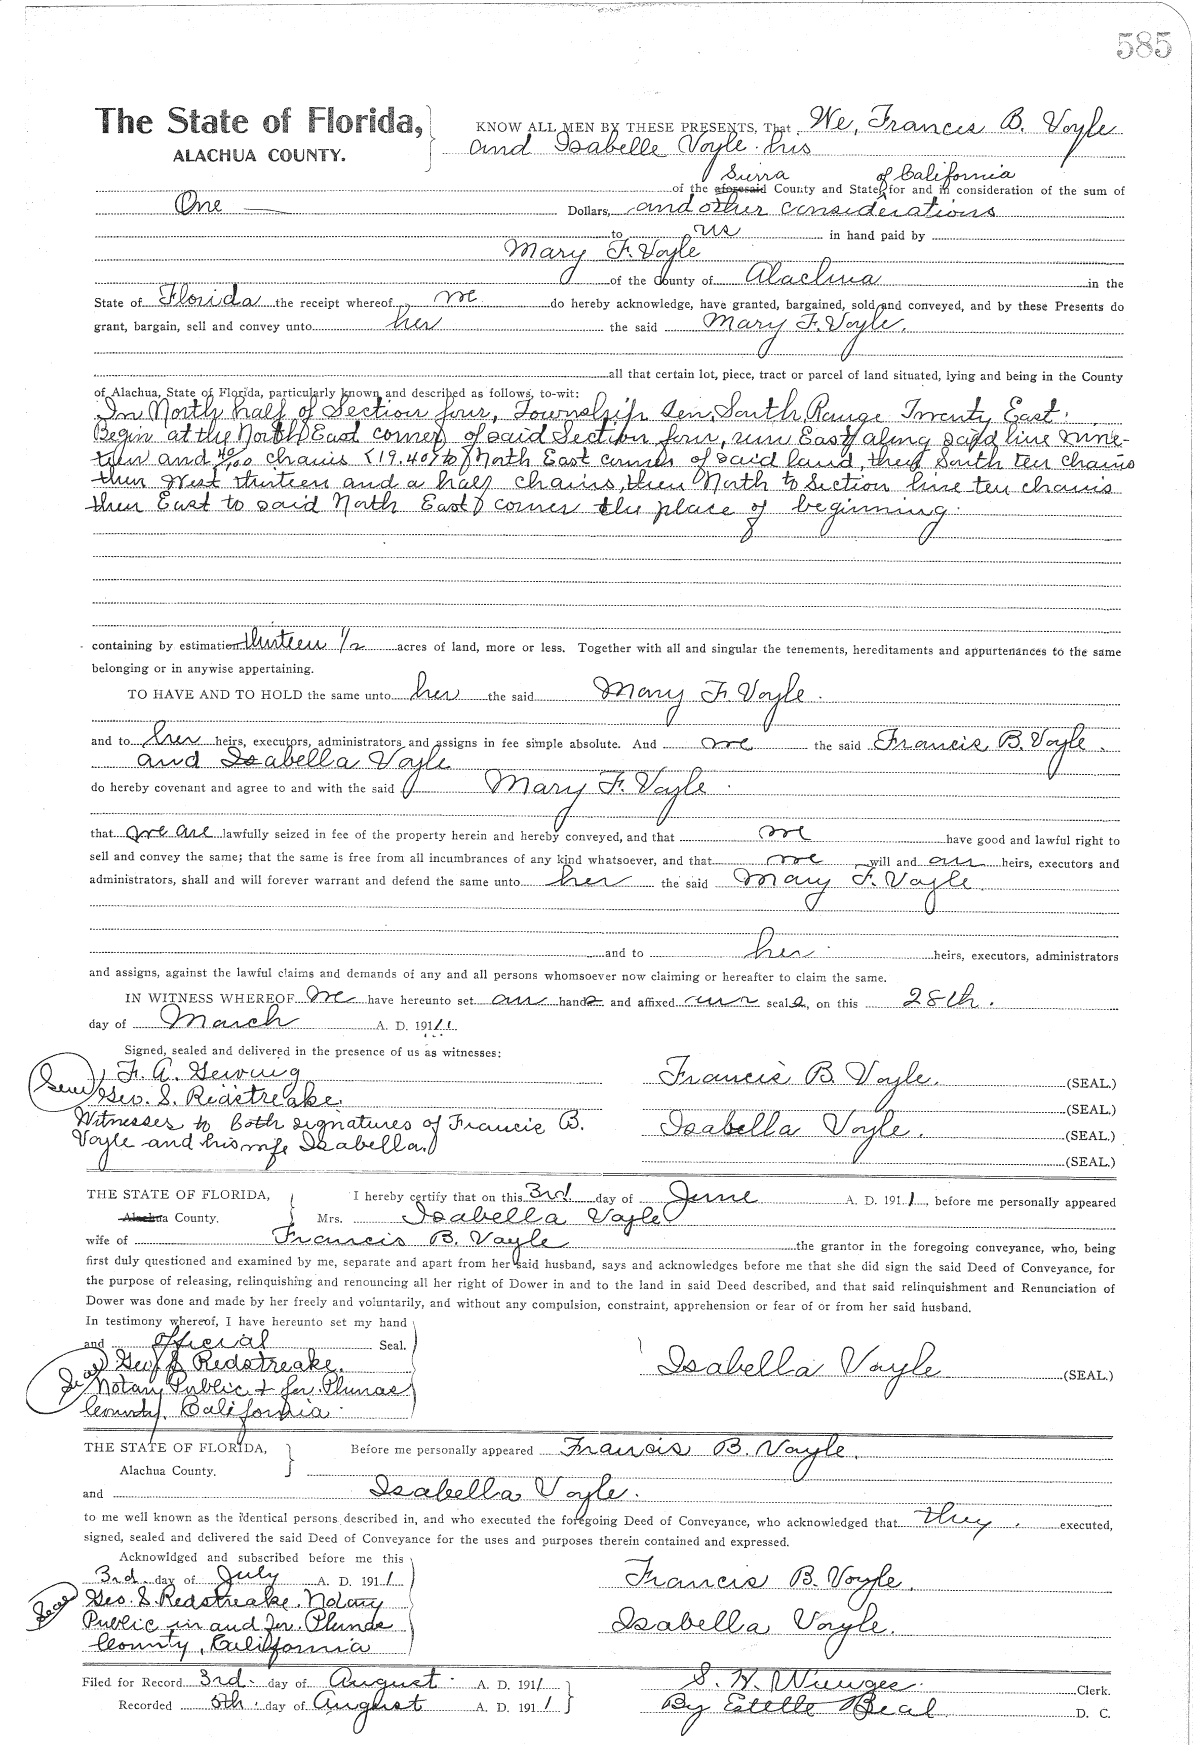 585
The State of Florida,
ALACHUA COUNTY.
KNOW ALL MEN BY THESE PRESENTS, That We, Francis B. Voyle
and Isabelle Voyle his
Sierra of California
of the aforesaid County and State, for and in consideration of the sum of
One Dollars, and other considerations
to us in hand paid by
Mary F. Voyle
of the County of Alachua in the
State of Florida the receipt whereof we do hereby acknowledge, have granted, bargained, sold and conveyed, and by these Presents do
grant, bargain, sell and convey unto her the said Mary F. Voyle.
all that certain lot, piece, tract or parcel of land situated, lying and being in the County
of Alachua, State of Florida, particularly known and described as follows, to-wit:
In North half of Section four, Township ten, South Range Twenty East.
Begin at the North East corner of said Section four, run East along said line nine-
teen and 40/100 chains (19.40) to North East corner of said land, then South ten chains
then West thirteen and a half chains, then North to Section line ten chains
then East to said North East corner the place of beginning.
containing by estimation thirteen 1/2 acres of land, more or less. Together with all and singular the tenements, hereditaments and appurtenances to the same
belonging or in anywise appertaining.
TO HAVE AND TO HOLD the same unto her the said Mary F. Voyle.
and to her heirs, executors, administrators and assigns in fee simple absolute. And we the said Francis B. Voyle.
and Isabella Voyle
do hereby covenant and agree to and with the said Mary F. Voyle.
that we are lawfully seized in fee of the property herein and hereby conveyed, and that we have good and lawful right to
sell and convey the same; that the same is free from all incumbrances of any kind whatsoever, and that we will and our heirs, executors and
administrators, shall and will forever warrant and defend the same unto her the said Mary F. Voyle
and to her heirs, executors, administrators
and assigns, against the lawful claims and demands of any and all persons whomsoever now claiming or hereafter to claim the same.
IN WITNESS WHEREOF We have hereunto set our hands and affixed our seals, on this 28th.
day of March A. D. 1911.
Signed, sealed and delivered in the presence of us as witnesses:
F. A.
Geo. S. Redstreake.
Witnesses to both signatures of Francis B.
Voyle and his wife Isabella.
Francis B. Voyle. (SEAL.)
(SEAL.)
Isabella Voyle. (SEAL.)
(SEAL.)
THE STATE OF FLORIDA,
Alachua County.
I hereby certify that on this 3rd day of June A. D. 1911, before me personally appeared
Mrs. Isabella Voyle
wife of Francis B. Voyle the grantor in the foregoing conveyance, who, being
first duly questioned and examined by me, separate and apart from her said husband, says and acknowledges before me that she did sign the said Deed of Conveyance, for
the purpose of releasing, relinquishing and renouncing all her right of Dower in and to the land in said Deed described, and that said relinquishment and Renunciation of
Dower was done and made by her freely and voluntarily, and without any compulsion, constraint, apprehension or fear of or from her said husband.
In testimony whereof, I have hereunto set my hand
and official Seal.
Seal Geo S Redstreake.
Notary Public + for Plumas
County, California.
Isabella Voyle (SEAL.)
THE STATE OF FLORIDA,
Alachua County.
Before me personally appeared Francis B. Voyle.
and Isabella Voyle.
to me well known as the identical persons described in, and who executed the foregoing Deed of Conveyance, who acknowledged that they executed,
signed, sealed and delivered the said Deed of Conveyance for the uses and purposes therein contained and expressed.
Acknowldged and subscribed before me this
3rd day of July A. D. 1911
Seal Geo. S. Redstreake. Notary
Public in and for Plumas
County, California
Francis B. Voyle.
Isabella Voyle.
Filed for Record 3rd. day of August. A. D. 1911
Recorded 5th. day of August A. D. 1911
S. H. Wienges. Clerk.
By Estelle Beal D. C.